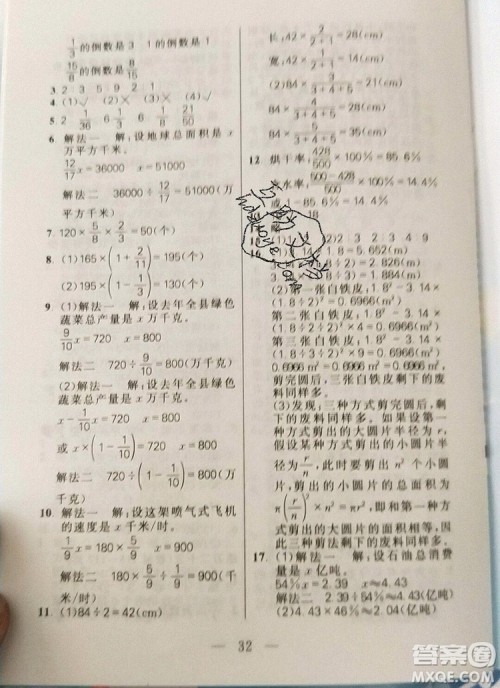 1/3的倒数是3 1的倒数是1
15/8的倒数是8/15
3 2 3 5 9 2 1
4 (1)√ (2)× (3)× (4)√
5 2 1/36 6 3/4 1 21/50
6 解法一 解:设地球总面积是x
万平方千米。
12/17x=36000 x=51000
解法二 36000÷12/17=51000(万
平方千米)
7 120×5/8×2/3=50(个)
8 (1)165×(1+2/11)=195(个)
(2)195×(1-1/3)=130(个)
9 (1)解法一 解:设去年全县绿色
蔬菜总产量是x万千克。
9/10x=720 x=800
解法二 720÷9/10=800(万千克)
(2)解法一 解:设去年全县绿色
蔬菜总产量是x万千克。
x-1/10x=720 x=800
或x×(1-1/10)=720 x=800
解法二 720÷(1-1/10)=800(万
千克)
10 解法一 解:设这架喷气式飞机
的速度是x千米/时。
1/5x=180 x=900
解法二 180÷1/5=900(千米/
时)
11 (1)84÷2=42(cm)
长:42×2/2+1=28(cm)
宽:42×1/2+1=14(cm)
(2)84×4/4+3+5=28(cm)
84×3/4+3+5=21(cm)
84×5/4+3+5=35(cm)
12 烘干率:428/500×100%=85.6%
含水率:500-428/500×100%
或1-85.6%
(1)1.8÷1=1.8 2 3 4 9
1.8=5.652(m)
(1.8÷2÷2)=2.826(m)
(1.8÷2÷3)=1.884(m)
(2)第一张白铁皮:1.8²-3.14×
(1.8÷2)²=0.6966(m²)
第二张白铁皮:1.8²-3.14×
(1.8÷2÷2)²×4=0.6966(m²)
第三张白铁皮:1.8²-3.14×
(1.8÷2÷3)²×9=0.6966(m²)
0.6966m²=0.6966m²=0.6966m²
剪完圆后,三张白铁皮剩下的废
料同样多。
(3)发现:三种方式剪完圆后,剩
下的废料同样多。如果设第一
种方式剪出的大圆片半径为r,
假设某种方式剪出的小圆片半
径为r/n,此时要剪出n²个小圆
片,剪出小圆片的总面积为
π(r/n)²×n²=πr²,即和第一种方
式剪出的大圆片的面积相等,因
此三种剪法剩下的废料同样多。
17 (1)解法一 解:设石油总消费
量是x亿吨。
54%x=2.39 x≈4.43
解法二 2.39÷54%≈4.43(亿吨)
(2)4.43×46%≈2.04(亿吨)
— 32 —
答案圈
MXQE.COM